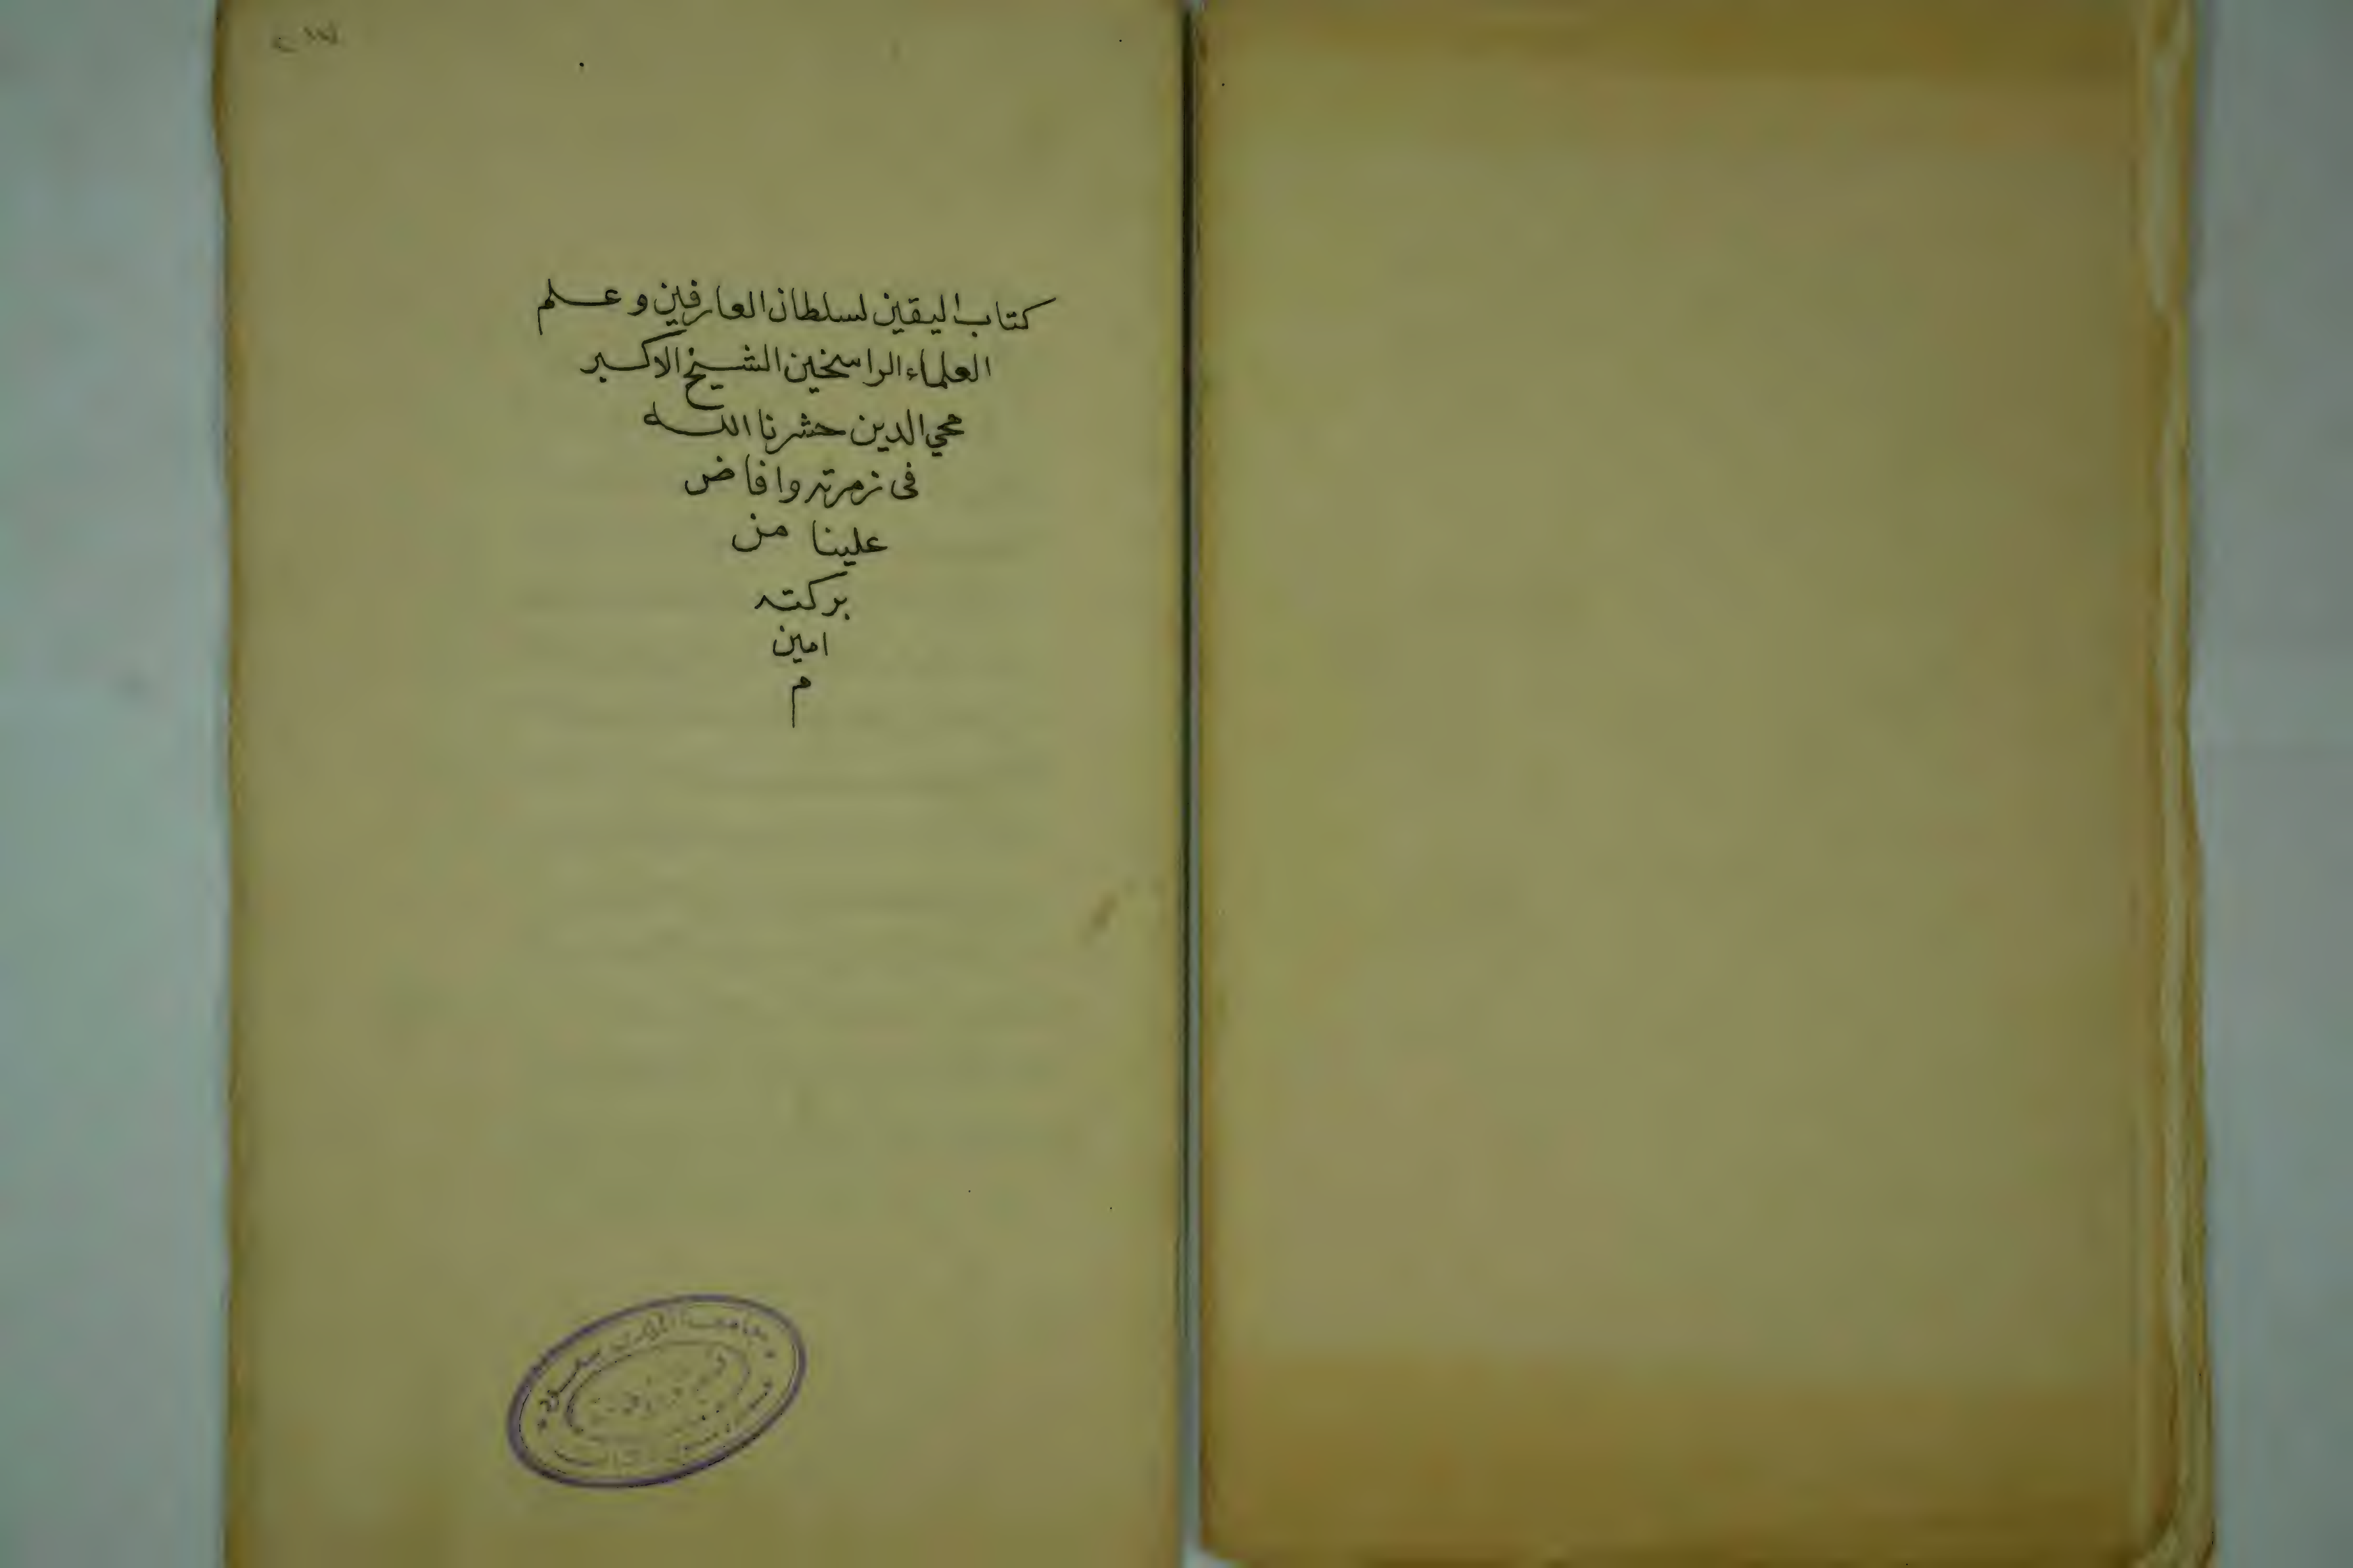 كتاب اليقين لسلطان العارفين وعلم
العلماء الراسخين الشيخ الاكبر
محي الدين حشرنا الله
في زمرته وافاض
علينا من
بركته
امين
م
جامعة الملك سعود